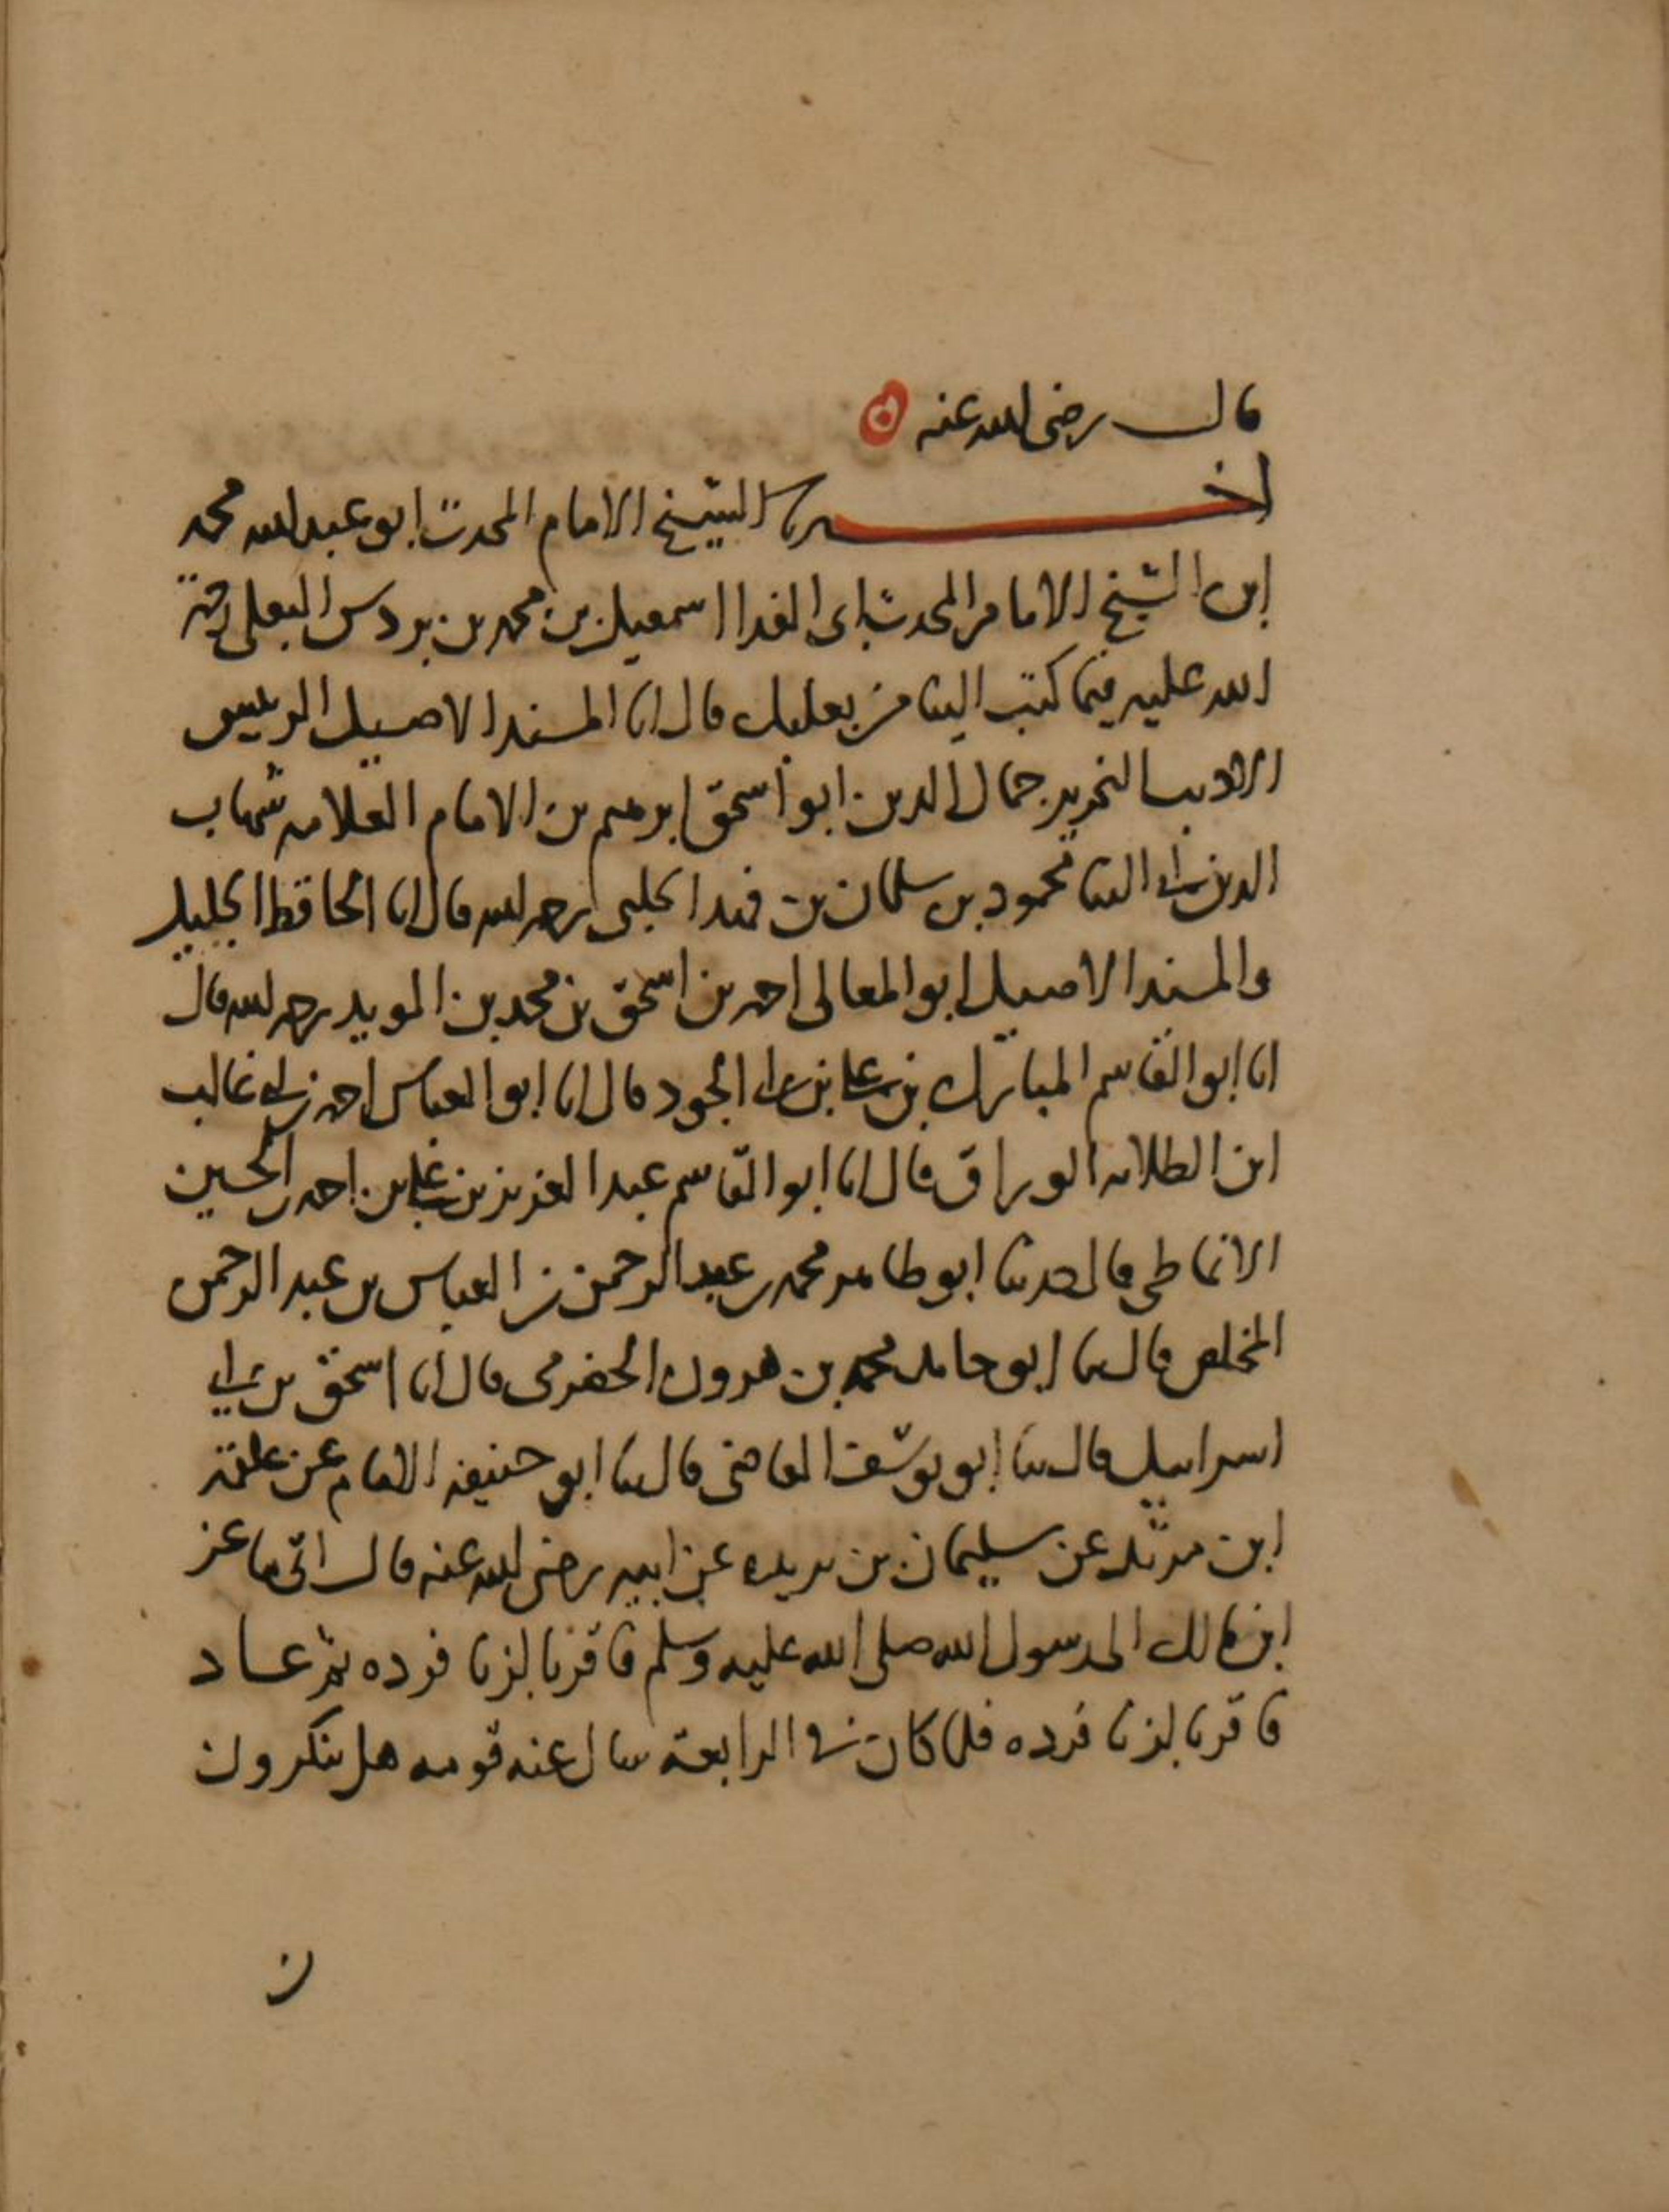 قال رضى الله عنه
اخبرنا الشيخ الامام المحدث ابو عبد الله محمد
ابن الشيخ الامام المحدث ابى الفدا اسمعيل بن محمد بن بردس البعلى رحمة
الله عليه فيما كتب الينا من بعلبك قال انا المسند الاصيل الرييس
الاديب النحرير جمال الدين ابو اسحق ابرهيم بن الامام العلامه شهاب
الدين ابى الثنا محمود بن سلمان بن فهد الحلبى رحمه الله قال انا الحافظ الجليل
والمسند الاصيل ابو المعالى احمد بن اسحق بن محمد بن المويد رحمه الله قال
انا ابو القاسم المبارك بن على بن ابى الجود قال انا ابو العباس احمد بن ابى غالب
ابن الطلايه الوراق قال انا ابو القاسم عبد العزيز بن على بن احمد بن الحسين
الانماطى قال حدثنا ابو طاهر محمد بن عبد الرحمن بن العباس بن عبد الرحمن
المخلص قال ثنا ابو حامد محمد بن هرون الحضرمى قال انا اسحق بن ابى
اسراييل قال ثنا ابو يوسف القاضى قال ثنا ابو حنيفه الامام عن علقمة
ابن مرثد عن سليمان بن بريده عن ابيه رضى الله عنه قال اتى ماعز
ابن مالك الى رسول الله صلى الله عليه وسلم فاقر بالزنا فرده ثم عاد
فاقر بالزنا فرده فلما كان فى الرابعة سال عنه قومه هل تنكرون
ن